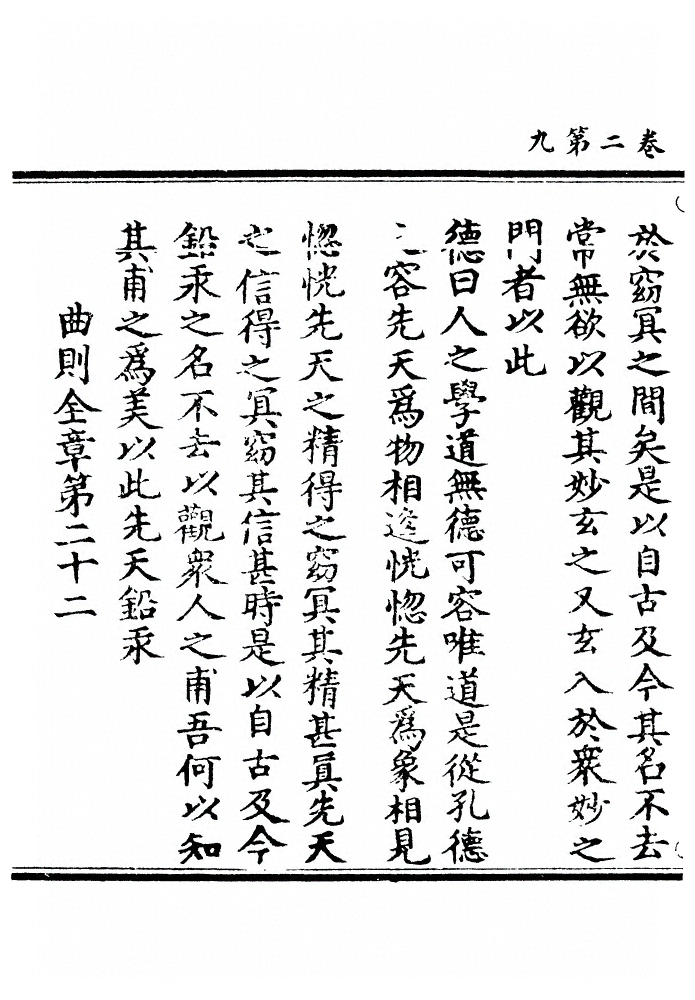 卷二第九
於窈冥之間矣是以自古及今其名不去
常無欲以觀其妙玄之又玄入於衆妙之
門者以此
德曰人之學道無德可容唯道是從孔德
之容先天爲物相逢恍惚先天爲象相見
惚恍先天之精得之窈冥其精甚眞先天
之信得之冥窈其信甚時是以自古及今
鉛汞之名不去以觀衆人之甫吾何以知
其甫之爲美以此先天鉛汞
曲則全章第二十二